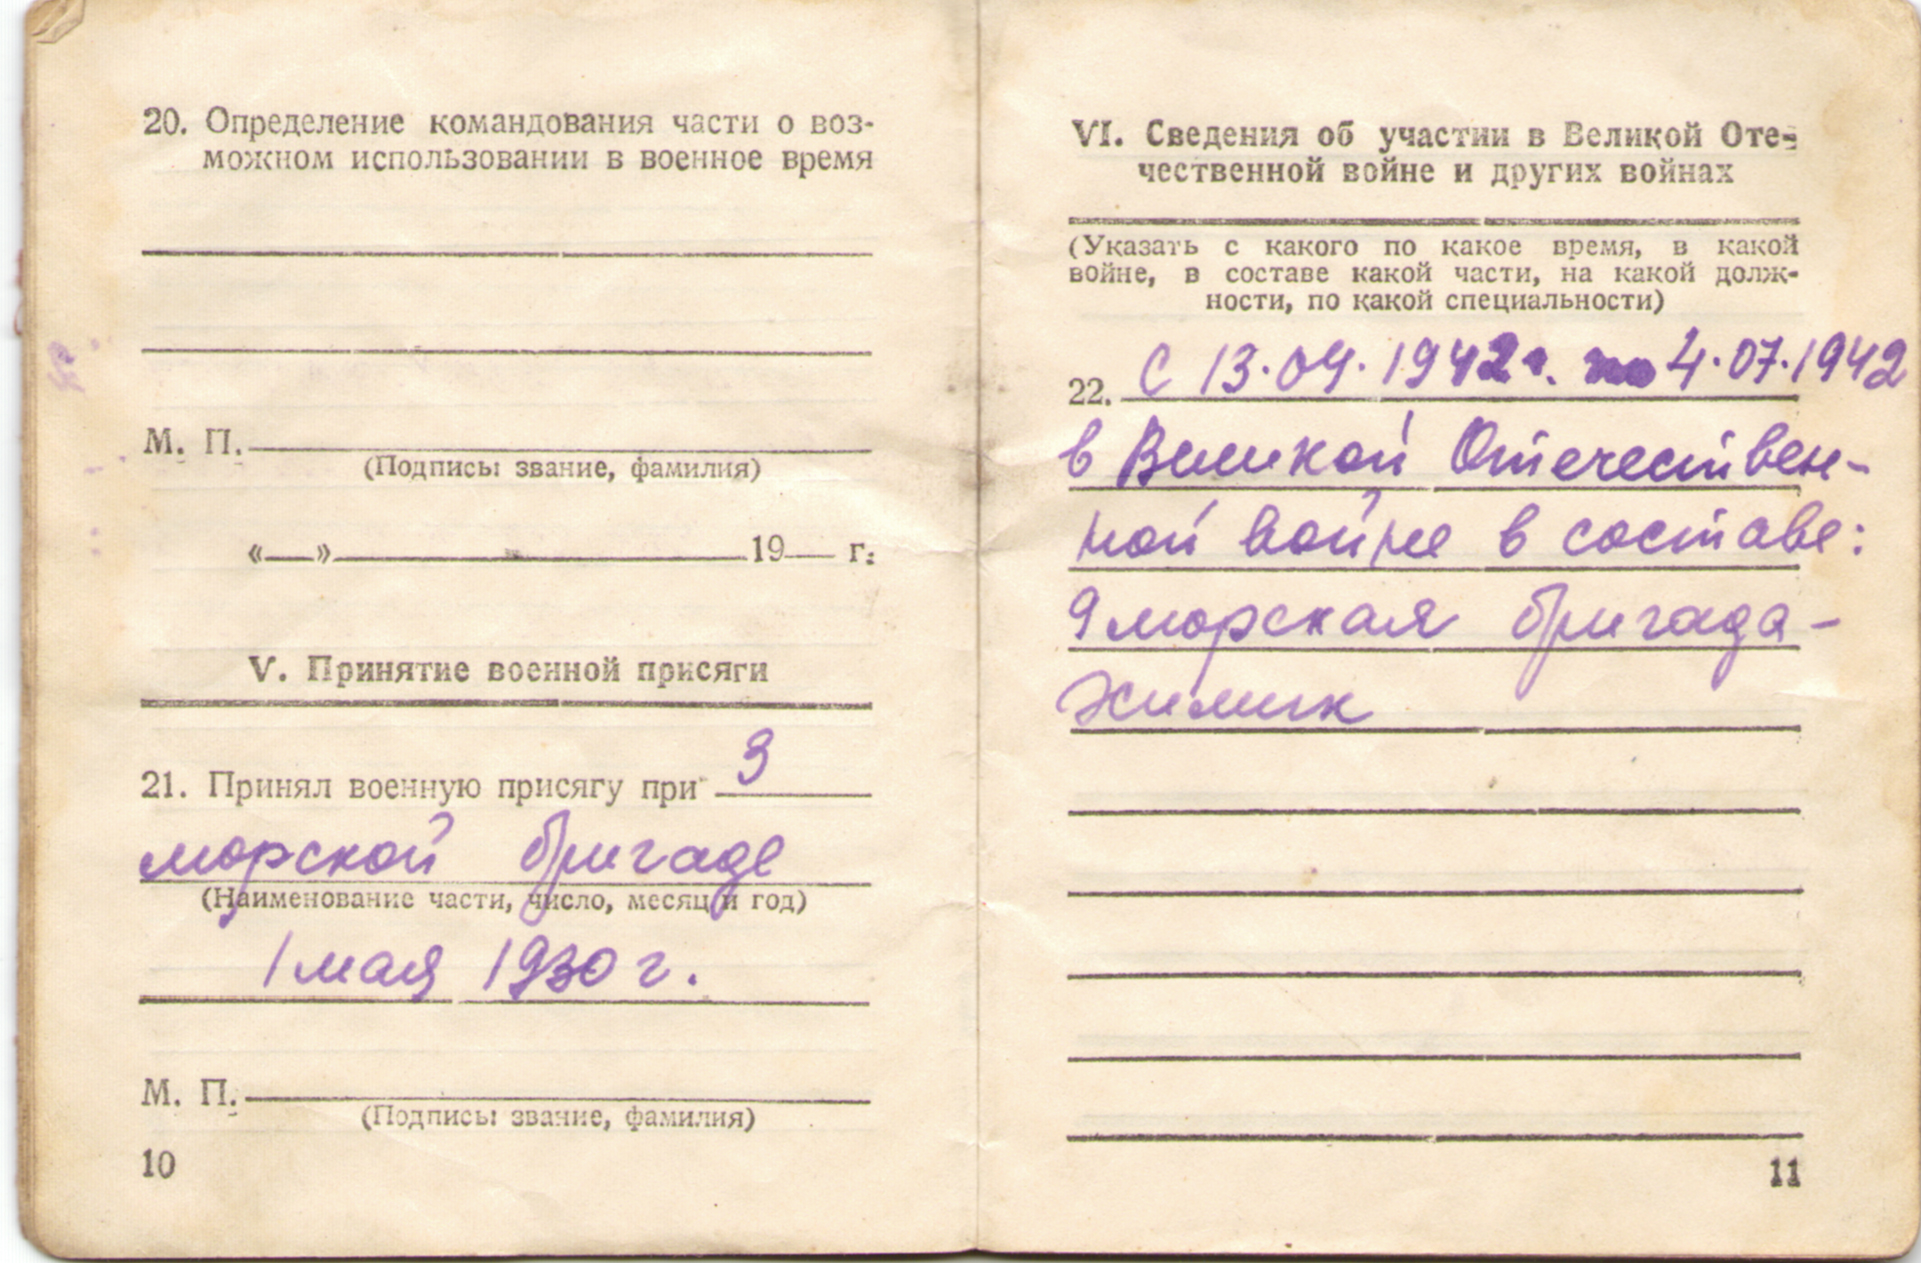 20. Определение командования части о воз-
можном использовании в военное время
М. П.
(Подпись: звание, фамилия)
« » 19 г.
V. Принятие военной присяги
21. Принял военную присягу при 3
морской бригаде
(Наименование части, число, месяц и год)
1 мая 1930 г.
М. П.
(Подпись: звание, фамилия)
10
VI. Сведения об участии в Великой Оте-
чественной войне и других войнах
(Указать с какого по какое время, в какой
войне, в составе какой части, на какой долж-
ности, по какой специальности)
22. С 13.04.1942 г. по 4.07.1942
в Великой Отечествен-
ной войне в составе:
9 морская бригада -
химик
11